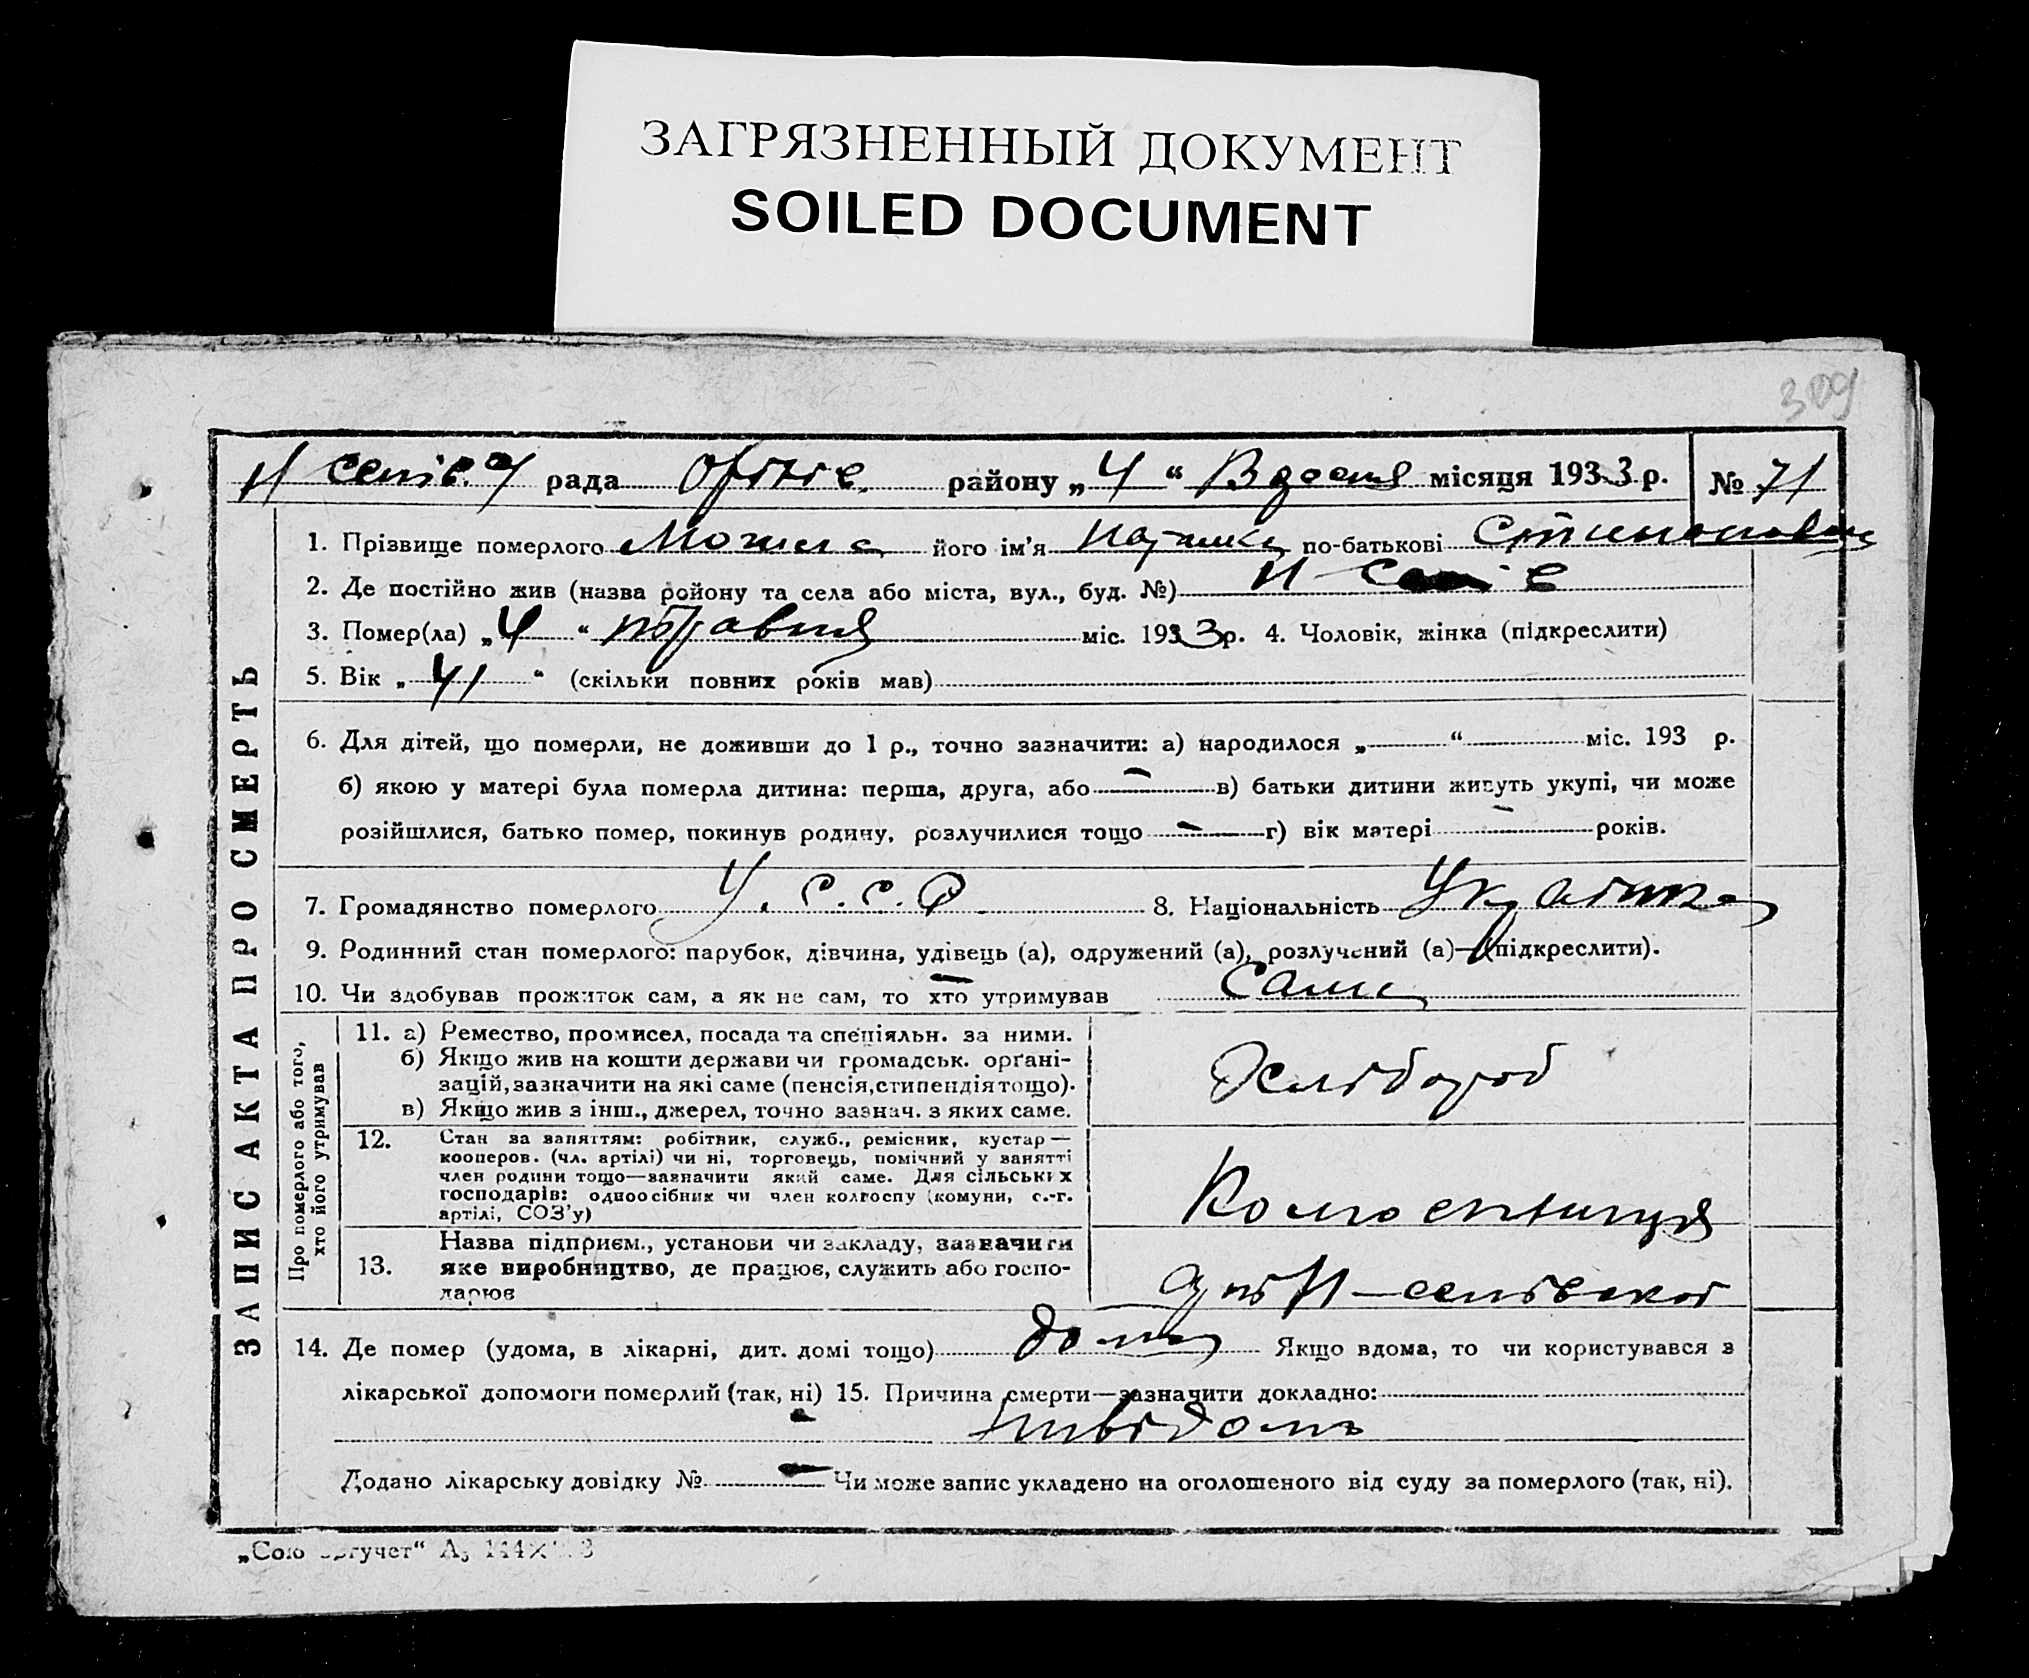 ЗАГРЯЗНЕННЫЙ ДОКУМЕНТ
SOILED DOCUMENT
309
рада району „ 4 “ місяця 1933 р. № 71
1. Прізвище померлого його ім'я по-батькові
2. Де постійно жив (назва району та села або міста, вул., буд. №)
3. Помер(ла) „ 4 “ травня міс. 1933 р. 4. Чоловік, жінка (підкреслити)
5. Вік „ 41 “ (скільки повних років мав)
6. Для дітей, що померли, не доживши до 1 р., точно зазначити: а) народилося „ “ міс. 193 р.
б) якою у матері була померла дитина: перша, друга, або — в) батьки дитини живуть укупі, чи може
розійшлися, батько помер, покинув родину, розлучилися тощо — г) вік матері — років.
7. Громадянство померлого У.С.С.Р 8. Національність Українка
9. Родинний стан померлого: парубок, дівчина, удівець (а), одружений (а), розлучений (а)—(підкреслити).
10. Чи здобував прожиток сам, а як не сам, то хто утримував Сама
ЗАПИС АКТА ПРО СМЕРТЬ
Про померлого або того,
хто його утримував
11. а) Ремество, промисел, посада та спеціяльн. за ними.
б) Якщо жив на кошти держави чи громадськ. орґані-
зацій, зазначити на які саме (пенсія, стипендія тощо).
в) Якщо жив з інш., джерел, точно зазнач. з яких саме.
Хлібороб
12. Стан за заняттям: робітник, служб., ремісник, кустар —
кооперов. (чл. артілі) чи ні, торговець, помічний у занятті
член родини тощо—зазначити який саме. Для сільських
господарів: одноосібник чи член колгоспу (комуни, с.-г.
артілі, СОЗ'у)
13. Назва підприєм., установи чи закладу, зазначити
яке виробництво, де працює, служить або госпо-
дарює
14. Де помер (удома, в лікарні, дит. домі тощо) дома Якщо вдома, то чи користувався з
лікарської допомоги померлий (так, ні) 15. Причина смерти—зазначити докладно:
Додано лікарську довідку № — Чи може запис укладено на оголошеного від суду за померлого (так, ні).